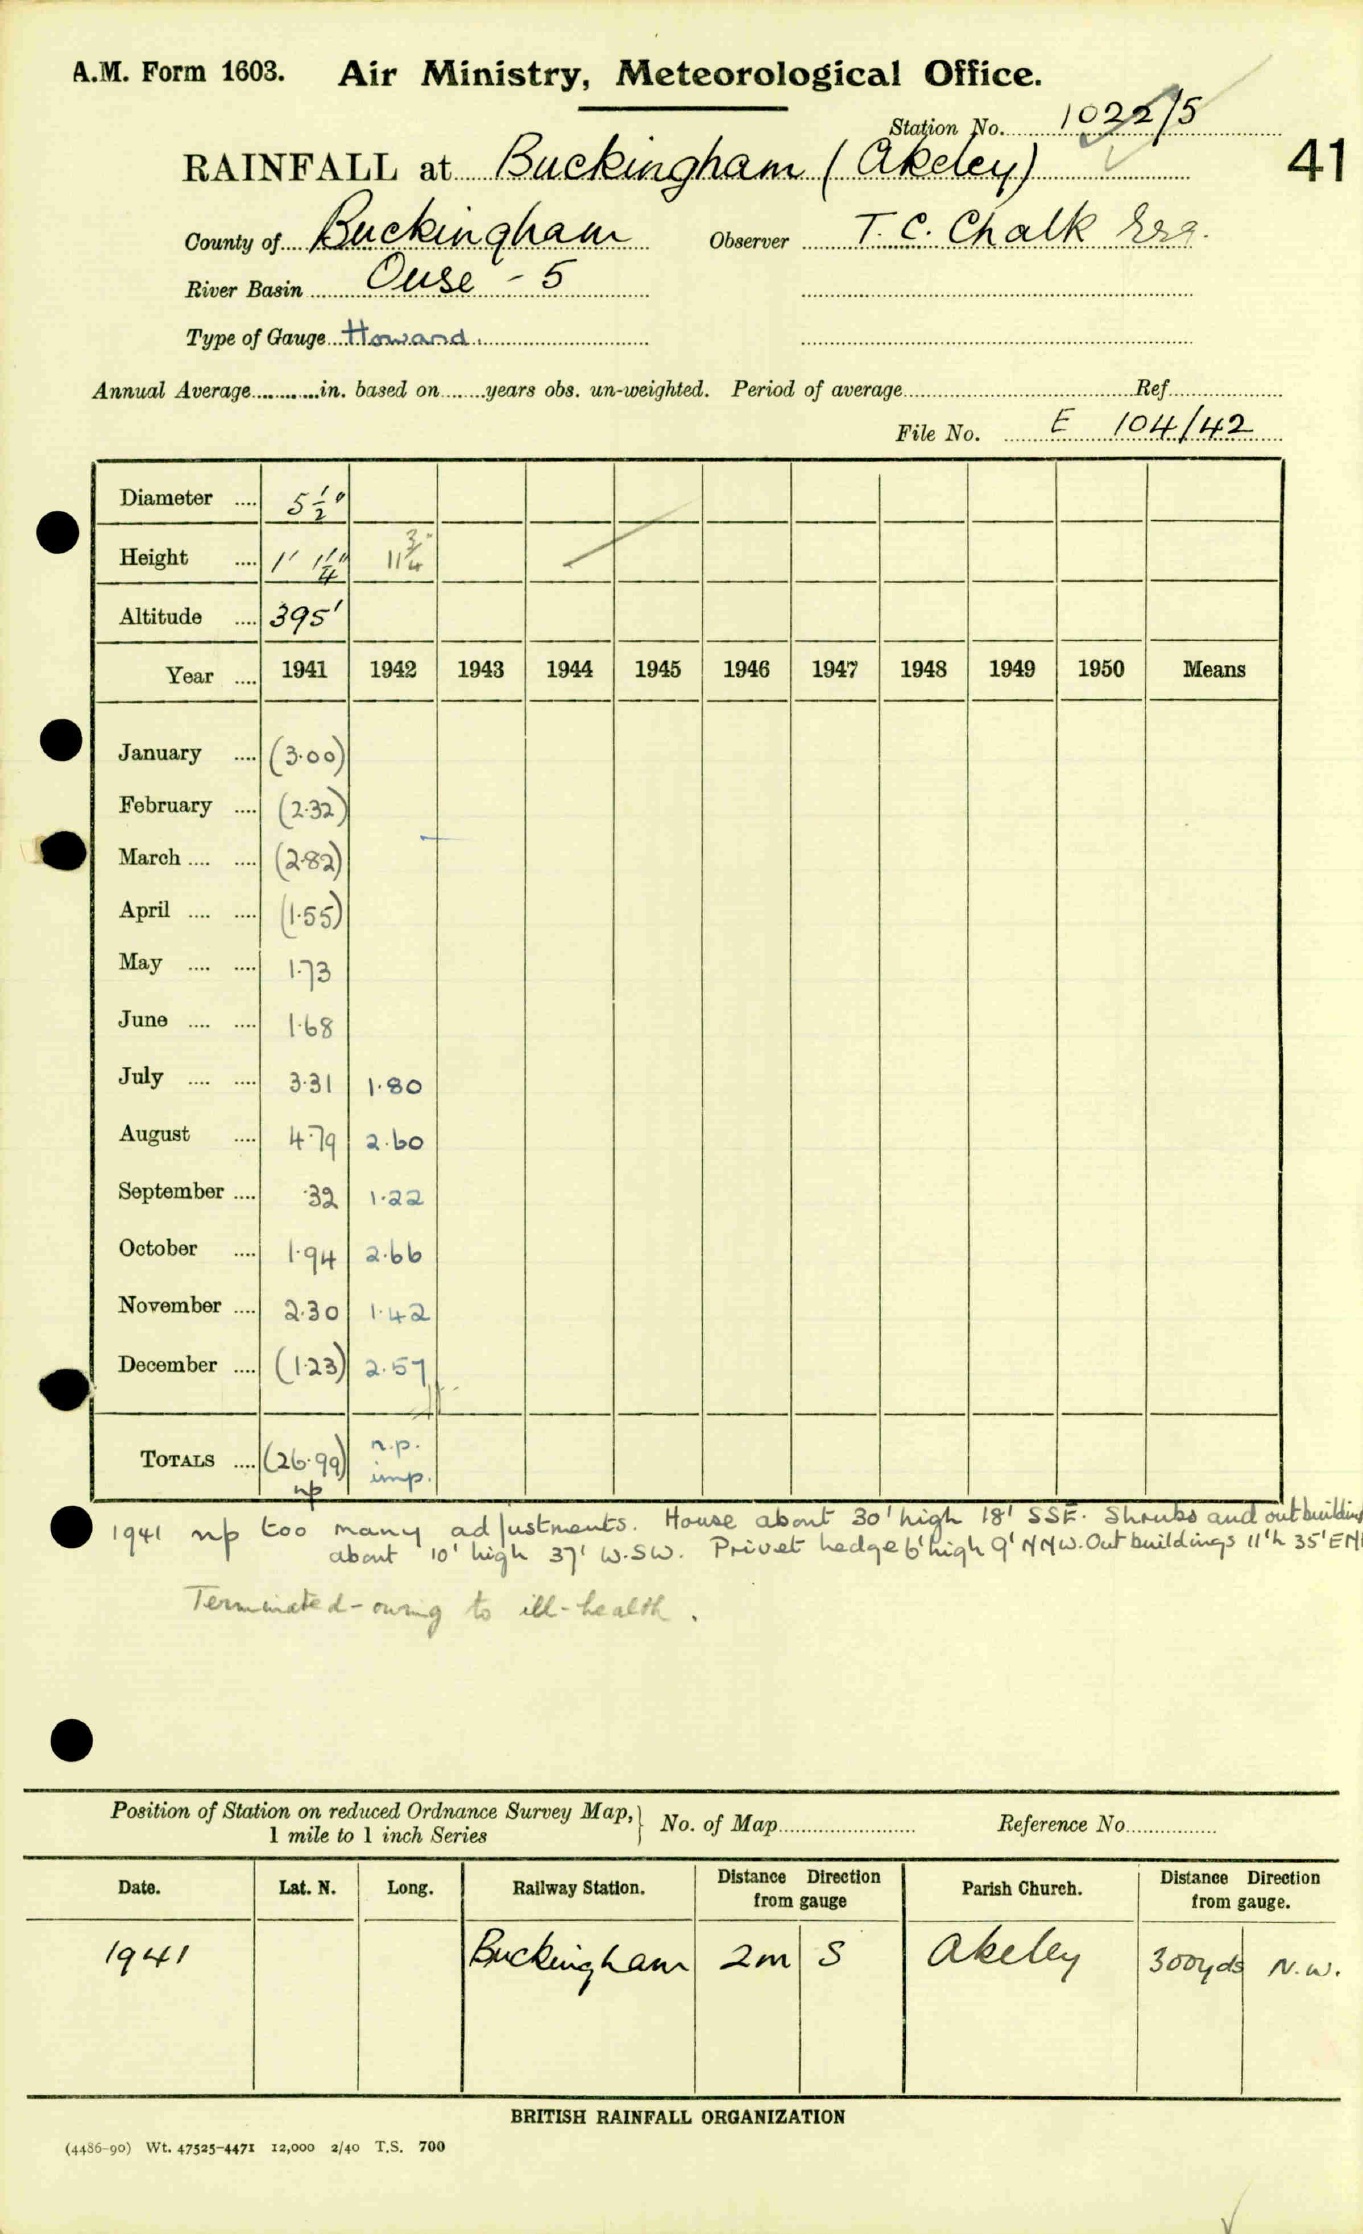 A.M. Form 1603. Air Ministry, Meteorological Office.
Station No. 1022/5
RAINFALL at Buckingham (Akeley) 41
County of Buckingham Observer T. C. Chalk Esq.
River Basin Ouse - 5
Type of Gauge Howard.
Annual Average ... in. based on ... years obs. un-weighted. Period of average ... Ref.
File No. E 104/42
Diameter 5½"
Height 1' 1¼" 11¾"
Altitude 395'
Year 1941 1942 1943 1944 1945 1946 1947 1948 1949 1950 Means
January (3.00)
February (2.32)
March (2.82)
April (1.55)
May 1.73
June 1.68
July 3.31 1.80
August 4.79 2.60
September .32 1.22
October 1.94 2.66
November 2.30 1.42
December (1.23) 2.57
TOTALS (26.99) n.p.
np imp.
1941 np too many adjustments. House about 30' high 18' SSE. Shrubs and outbuildin
about 10' high 37' W.SW. Privet hedge 6' high 9' NNW. Out buildings 11'h 35' EN
Terminated - owing to ill-health.
Position of Station on reduced Ordnance Survey Map, No. of Map Reference No.
1 mile to 1 inch Series
Date. Lat. N. Long. Railway Station. Distance Direction from gauge Parish Church. Distance Direction from gauge.
1941 Buckingham 2m S Akeley 300yds N.W.
BRITISH RAINFALL ORGANIZATION
(4486-90) Wt. 47525-4471 12,000 2/40 T.S. 700